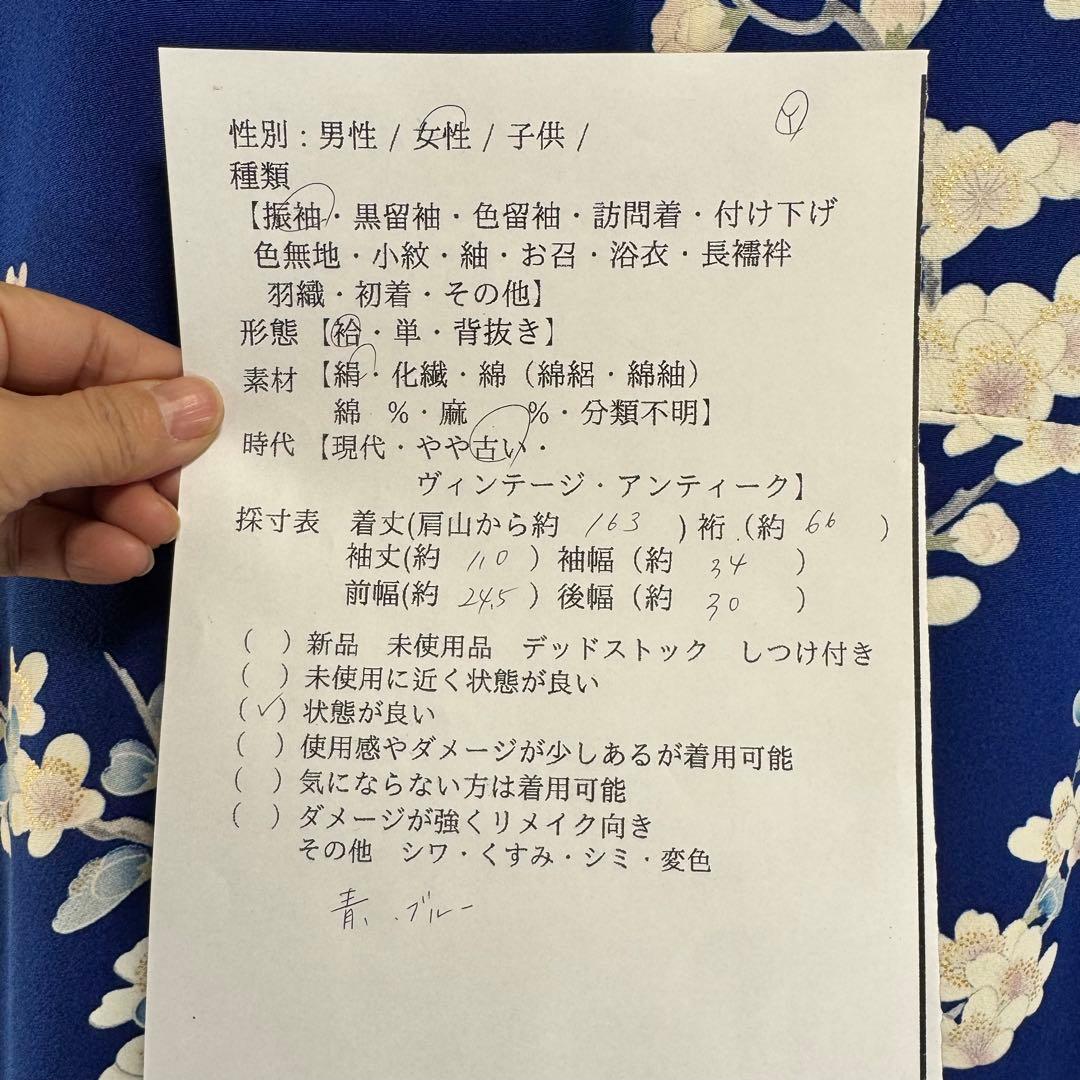 Y
性別：男性 / 女性 / 子供 /
種類
【振袖・黒留袖・色留袖・訪問着・付け下げ
色無地・小紋・紬・お召・浴衣・長襦袢
羽織・初着・その他】
形態【袷・単・背抜き】
素材【絹・化繊・綿（綿絽・綿紬）
綿 %・麻 %・分類不明】
時代【現代・やや古い・
ヴィンテージ・アンティーク】
採寸表 着丈(肩山から約 163 ) 裄（約 66 ）
袖丈(約 110 ）袖幅（約 34 ）
前幅(約 24.5 ）後幅（約 30 ）
（ ）新品 未使用品 デッドストック しつけ付き
（ ）未使用に近く状態が良い
（✓）状態が良い
（ ）使用感やダメージが少しあるが着用可能
（ ）気にならない方は着用可能
（ ）ダメージが強くリメイク向き
その他 シワ・くすみ・シミ・変色
青、ブルー